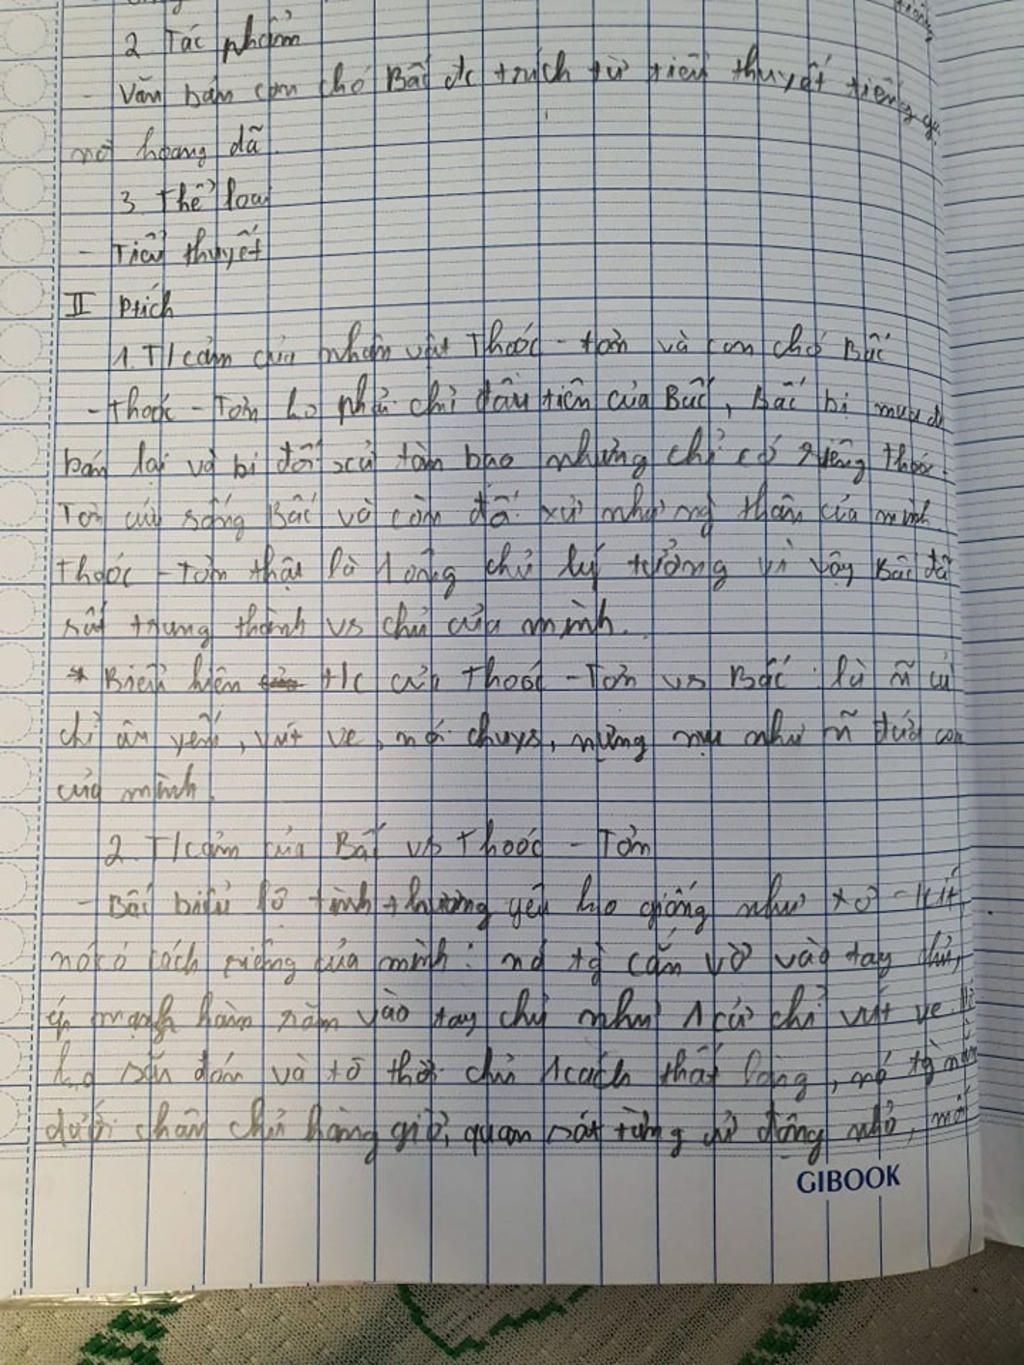 2 Tác phẩm
- Văn bản con chó Bấc đc trích từ tiểu thuyết tiếng gọi
nơi hoang dã
3 Thể loại
- Tiểu thuyết
II Ptích
1. T/cảm của nhân vật Thoóc - tơn và con chó Bấc
- Thoóc - Tơn ko phải chỉ đầu tiên của Bấc, Bấc bị mua đi
bán lại và bị đối xử tàn bạo nhưng chỉ có riêng Thoóc -
Tơn cứu sống Bấc và còn đối xử như ng thân của mình
Thoóc - Tơn thật là 1 ông chủ lý tưởng vì vậy Bấc đã
rất trung thành vs chủ của mình.
* Biểu hiện t/c của Thoóc - Tơn vs Bấc : là ~ cử
chỉ âu yếm, vút ve, nói chuys, nựng nịu như ~ đứa con
của mình.
2. T/cảm của Bấc vs Thoóc - Tơn
- Bấc biểu lộ tình thương yêu ko giống như xơ - kít,
nó có cách riêng của mình : nó tg cắn vờ vào tay chủ,
ép mạnh hàm răm vào tay chủ như 1 cử chỉ vút ve
ko săn đón và tô thờ chủ 1 cách thất lòng, nó tg nằm
dưới chân chủ hàng giờ, quan sát từng cử động nhỏ, mỗi
GIBOOK